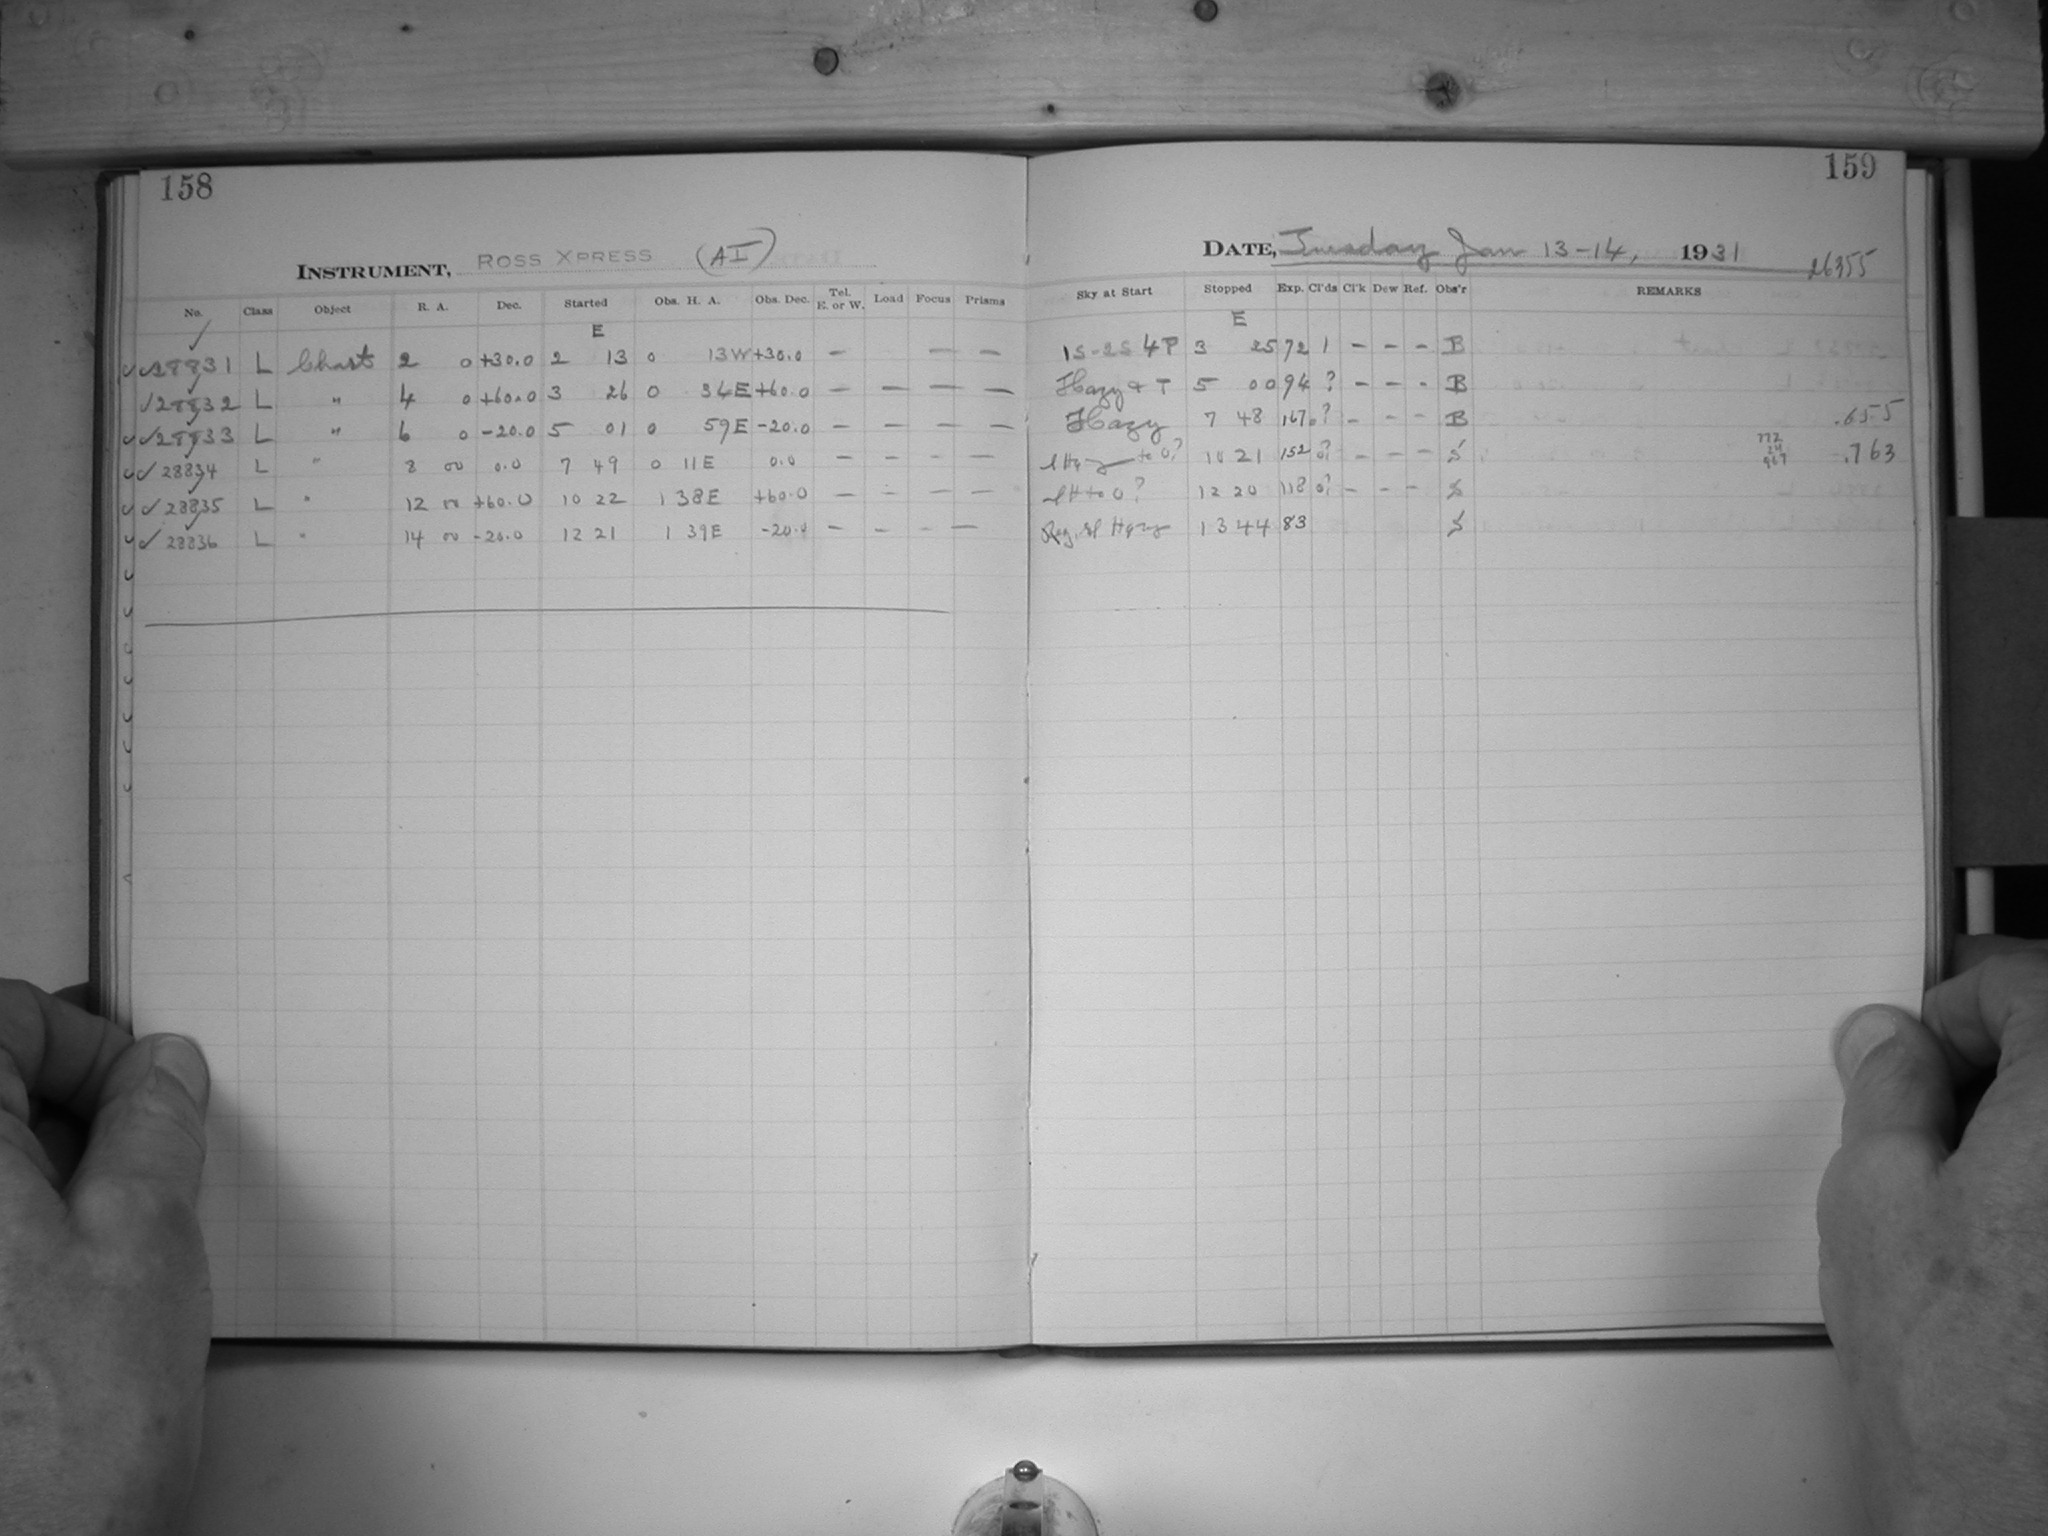 158
INSTRUMENT, ROSS XPRESS (AI)
No. Class Object R. A. Dec. Started Obs. H. A. Obs. Dec. Tel. E. or W. Load Focus Prisms
E
28831 L Chart 2 0 +30.0 2 13 0 13W +30.0 — — —
28832 L " 4 0 +60.0 3 26 0 34E +60.0 — — — —
28833 L " 6 0 -20.0 5 01 0 59E -20.0 — — — —
28834 L " 8 00 0.0 7 49 0 11E 0.0 — — — —
28835 L " 12 00 +60.0 10 22 1 38E +60.0 — — — —
28836 L " 14 00 -20.0 12 21 1 39E -20.0 — — — —
159
DATE, Tuesday Jan 13-14, 1931
26355
Sky at Start Stopped Exp. Cl'ds Cl'k Dew Ref. Obs'r REMARKS
E
1S-2S 4P 3 25 72 1 — — — B
Hazy + T 5 00 94 ? — — — B
Hazy 7 48 167 0? — — — B .655
to 0? 10 21 152 0? — — — S .763
to 0? 12 20 118 0? — — — S
Hazy 13 44 83 S